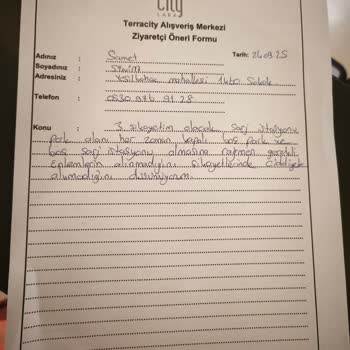 City
LARA
Terracity Alışveriş Merkezi
Ziyaretçi Öneri Formu
Adınız : Samet Tarih: 26.09.25
Soyadınız :
Adresiniz : Yeşilbahçe mahallesi 1460 Sokak
Telefon : 0530 976 91 28
Konu : 3. şikayetim olacak şarj istasyonu
park alanı her zaman kapalı boş park ve
boş şarj istasyonu olmasına rağmen gerekli
önlemlerin alınmadığını şikayetlerinde ciddiyete
alınmadığını düşünüyorum.